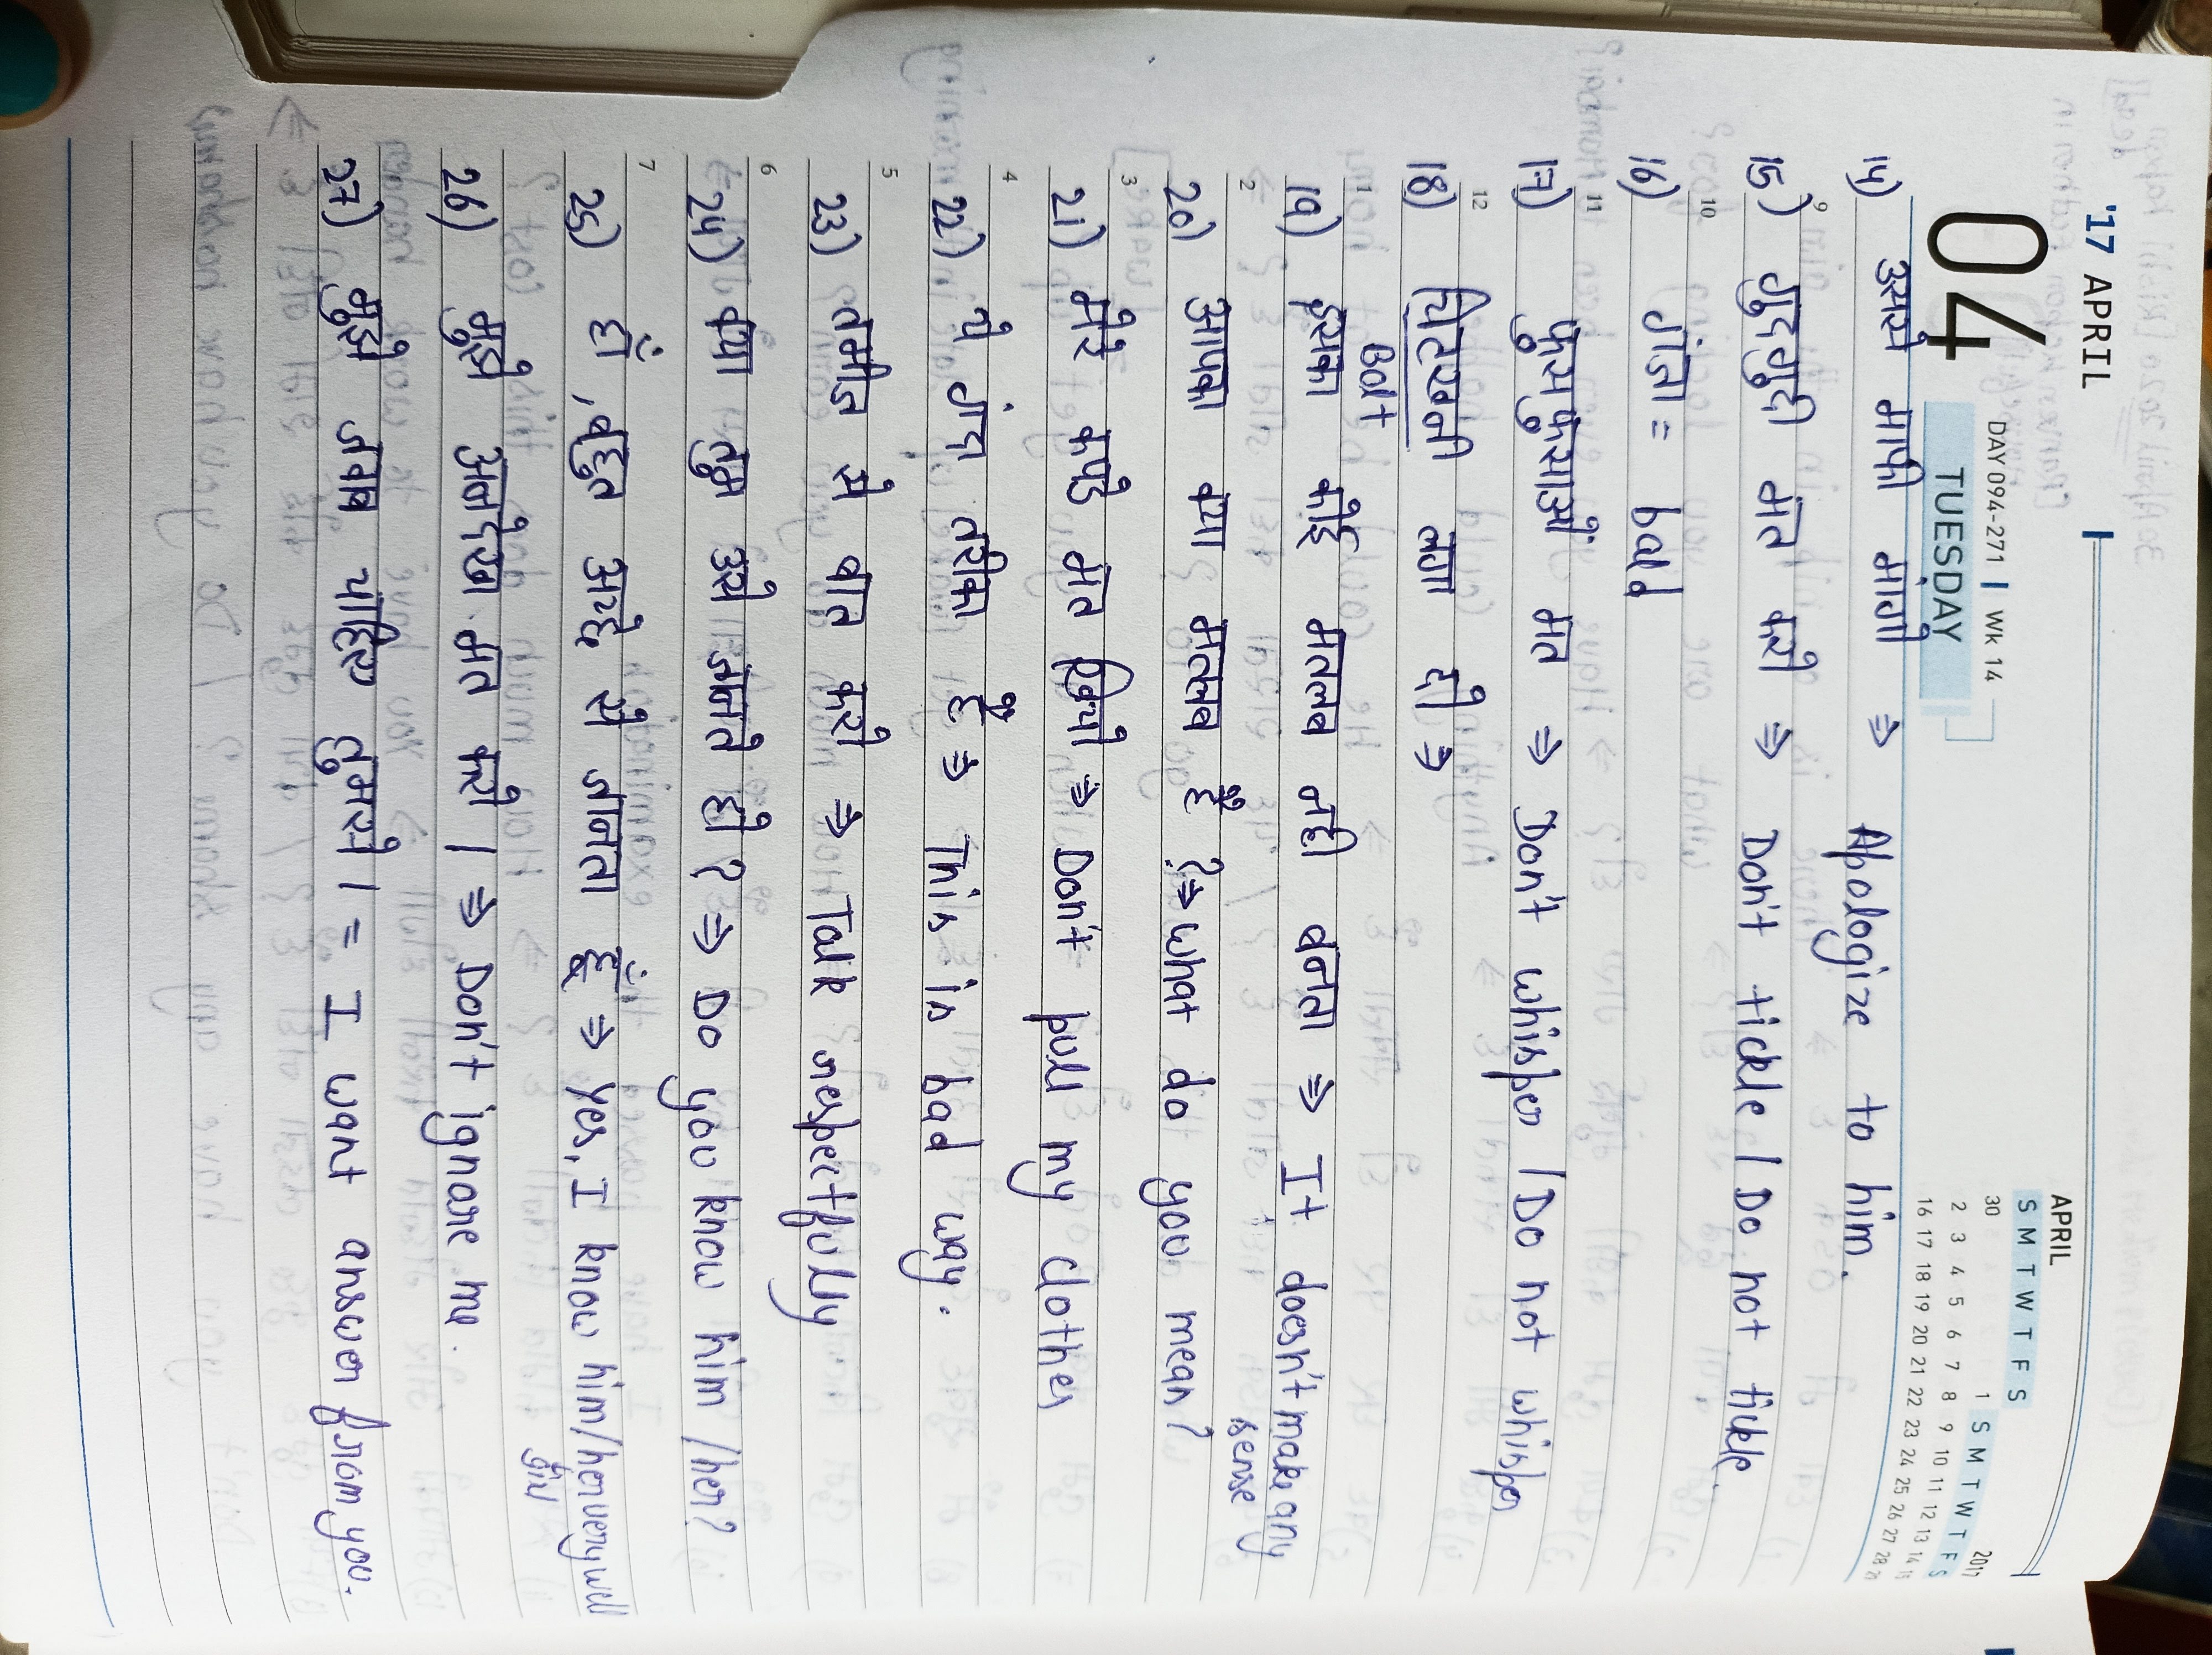 '17 APRIL
04
DAY 094-271 | Wk 14
TUESDAY
APRIL 2017
S M T W T F S S M T W T F S
30 1
2 3 4 5 6 7 8 9 10 11 12 13 14 15
16 17 18 19 20 21 22 23 24 25 26 27 28 29
14) उससे मापी मांगो ⇒ Apologize to him.
9
15) गुदगुदी मत करो ⇒ Don't tickle / Do not tickle.
10
16) गंजा = bald
11
17) फुसफुसाओ मत ⇒ Don't whisper / Do not whisper
12
18) चिटखनी लगा दो ⇒
Bolt
1
19) इसका कोई मतलब नही बनता ⇒ It doesn't make any
sense
2
20) आपका क्या मतलब है ? ⇒ what do you mean?
3
21) मेरे कपड़े मत खिचो ⇒ Don't pull my clothes
4
22) ये गंदा तरीका है ⇒ This is bad way.
5
23) तमीज से बात करो ⇒ Talk respectfully
6
24) क्या तुम उसे जानते हो ? ⇒ Do you know him / her?
7
25) हाँ , बहुत अच्छे से जानता हूँ ⇒ Yes, I know him/her very well
26) मुझे अनदेखा मत करो । ⇒ Don't ignore me.
27) मुझे जवाब चाहिए तुमसे । = I want answer from you.